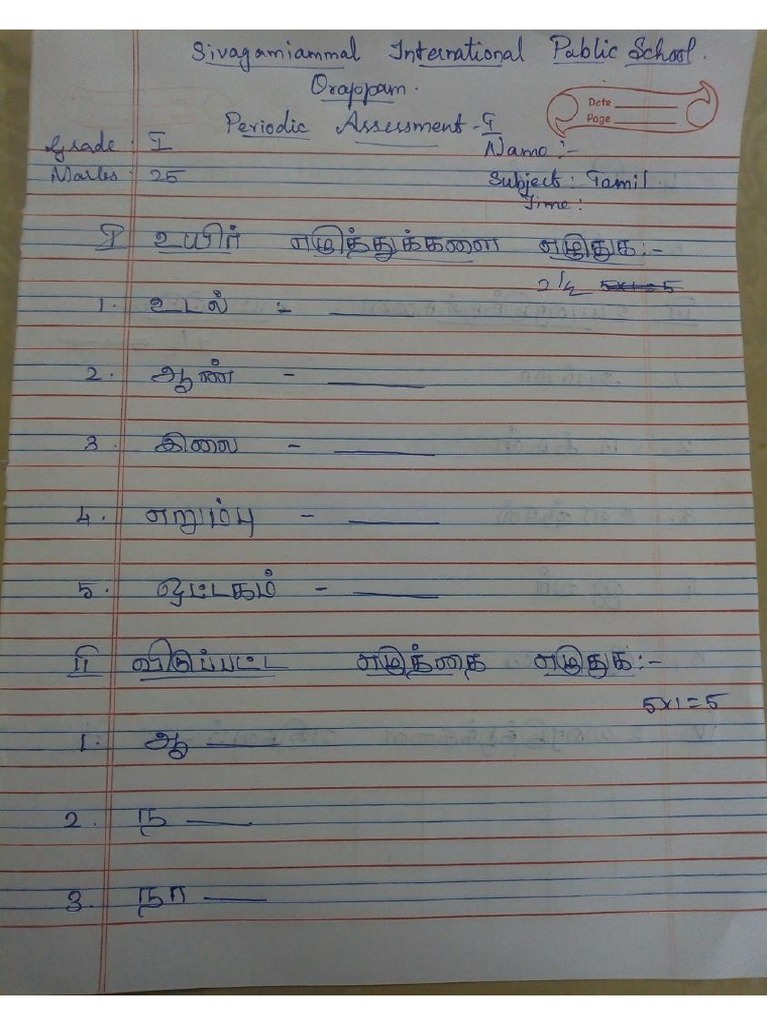 Sivagamiammal International Public School.
Orappam.
Date
Page
Periodic Assessment - I
Grade : I
Name :-
Marks : 25
Subject : Tamil.
Time :
I உயிர் எழுத்துக்களை எழுதுக :-
2 1/2 5x1=5
1. உடல் :-
2. ஆண் -
3. இலை -
4. எறும்பு -
5. ஒட்டகம் -
II விடுப்பட்ட எழுத்தை எழுதுக :-
5x1=5
1. ஆ
2. ந
3. நா